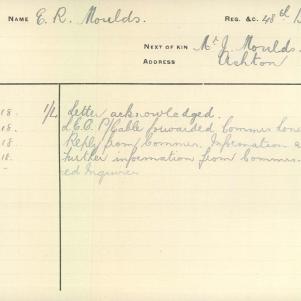 NAME E. R. Moulds. REG. &C. 48th
NEXT OF KIN Mr J. Moulds.
ADDRESS Ashton
18. 1/L Letter acknowledged.
18. Cable forwarded Commis
18. Reply from Commr. Information
18. Further information from Commis-
ed Inquiries